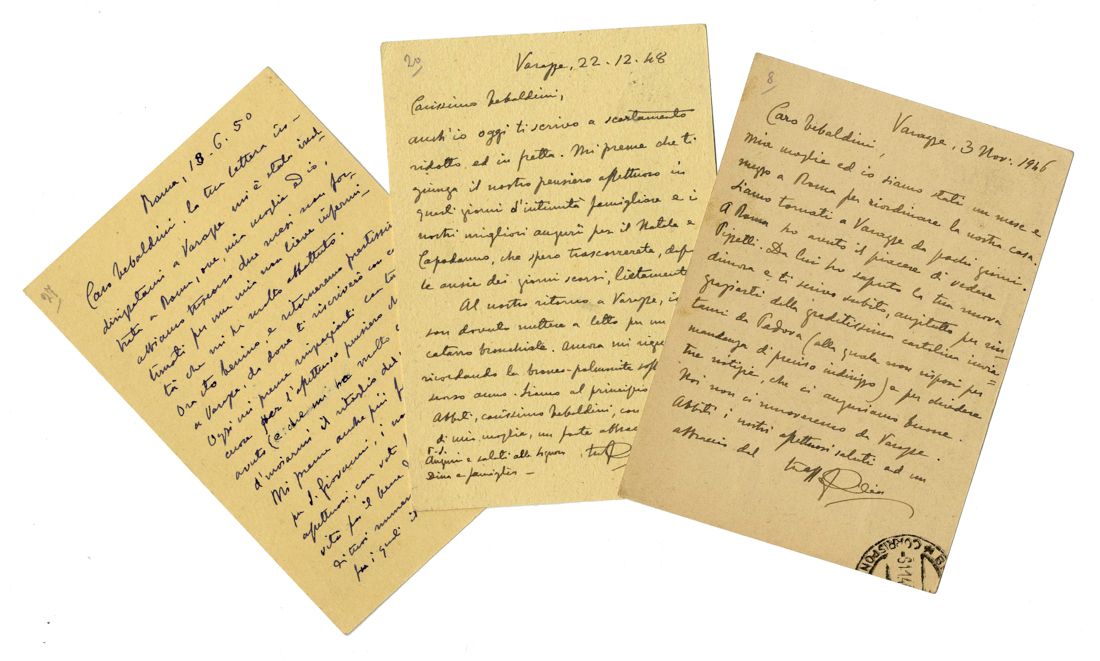 27
Roma, 18.6.50
Caro Tebaldini, la tua lettera in-
dirizzatami a Varazze mi è stata
a Roma, ove, mia moglie ed io,
abbiamo trascorso due mesi non for-
tunati per una mia non lieve infermi-
tà che mi ha molto abbattuto.
Ora sto benino, e ritorneremo prestissimo
a Varazze, da dove ti riscriverò con
Oggi mi preme ringraziarti con
cuore per l'affettuoso pensiero
avuto (e che mi ha molto
d'inviarmi il ritaglio del
Mi preme anche più
per S. Giovanni, i
affettuosi, con voti
vita per il bene
di tuoi
fra i quali il
20
Varazze, 22.12.48
Carissimo Tebaldini,
anch'io oggi ti scrivo a scartamento
ridotto ed in fretta. Mi preme che ti
giunga il nostro pensiero affettuoso in
questi giorni d'intimità famigliare e i
nostri migliori auguri per il Natale e
Capodanno, che spero trascorrerete, dopo
le ansie dei giorni scorsi, lietamente
Al nostro ritorno a Varazze, io
son dovuto mettere a letto per un
catarro bronchiale. Ancora mi
ricordando la bronco-polmonite
scorso anno. Siamo al principio
Abbiti, carissimo Tebaldini, con
di mia moglie, un forte
P.S.
Auguri e saluti alla Signora
Dina e famiglia -
8
Varazze, 3 Nov. 1946
Caro Tebaldini,
mia moglie ed io siamo stati un mese e
mezzo a Roma per riordinare la nostra casa.
Siamo tornati a Varazze da pochi giorni.
A Roma ho avuto il piacere di vedere
Pizzetti. Da lui ho saputo la tua nuova
dimora e ti scrivo subito, anzitutto per rin
graziarti della graditissima cartolina invia=
tami da Padova (alla quale non risposi per
mancanza di preciso indirizzo) e per chiedere
tue notizie, che ci auguriamo buone.
Noi non ci muoveremo da Varazze.
Abbiti i nostri affettuosi saluti ed un
abbraccio dal
CORRISPON